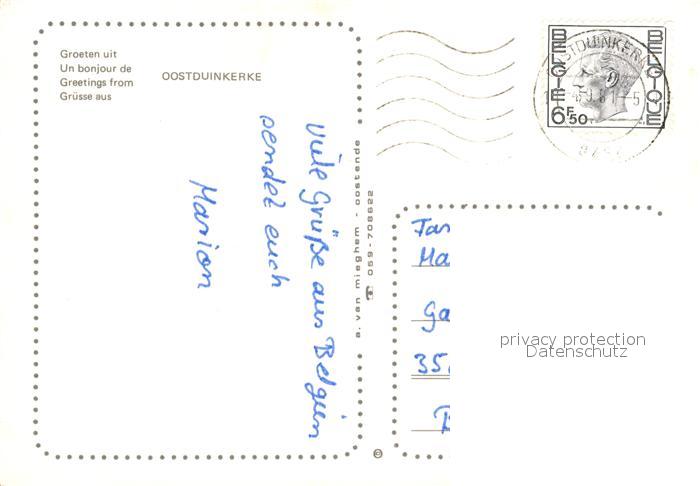 Groeten uit
Un bonjour de
Greetings from
Grüsse aus
OOSTDUINKERKE
Viele Grüße aus Belgien
sendet euch
Marion
a. van mieghem - oostende
☎ 059-708622
©
BELGIE
BELGIQUE
6F50
OOSTDUINKERKE
Ma
Ga
35.
privacy protection
Datenschutz